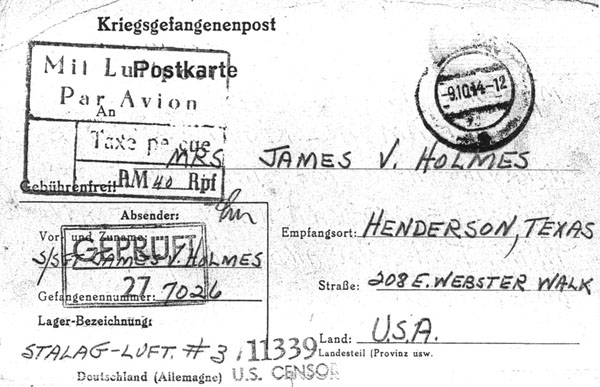 Kriegsgefangenenpost
Mit Luftpost
Postkarte
Par Avion
An
Taxe perçue
RM 40 Rpf
-9.10.44-12
MRS JAMES V. HOLMES
Gebührenfrei!
Absender:
Vor- und Zuname:
S/SGT JAMES V. HOLMES
GEPRÜFT
27
Gefangenennummer: 7026
Lager-Bezeichnung:
STALAG-LUFT. #3
Deutschland (Allemagne)
Empfangsort: HENDERSON, TEXAS
Straße: 208 E. WEBSTER WALK
Land: U.S.A.
Landesteil (Provinz usw.
11339
U.S. CENSOR